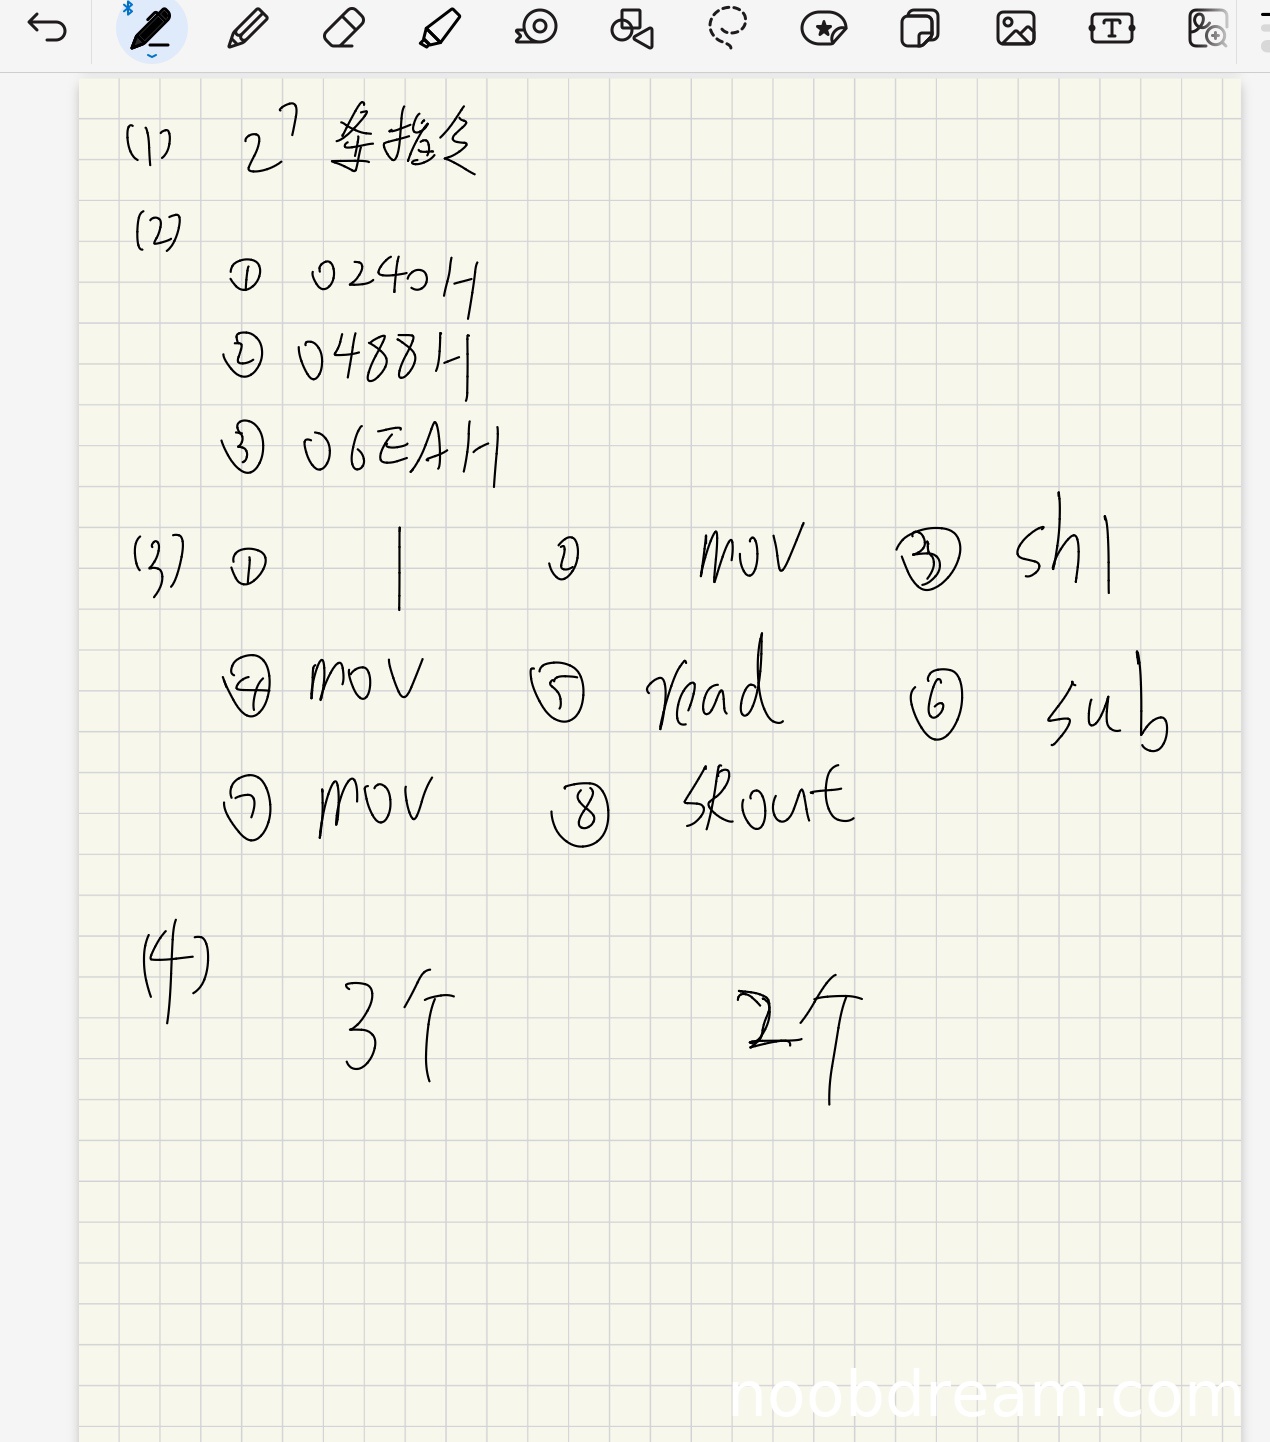 (1) 2⁷ 条指令
(2)
① 0240H
② 0488H
③ 06EAH
(3) ① 1 ② mov ③ shl
④ mov ⑤ read ⑥ sub
⑦ mov ⑧ SRout
(4)
3个 2个
noobdream.com